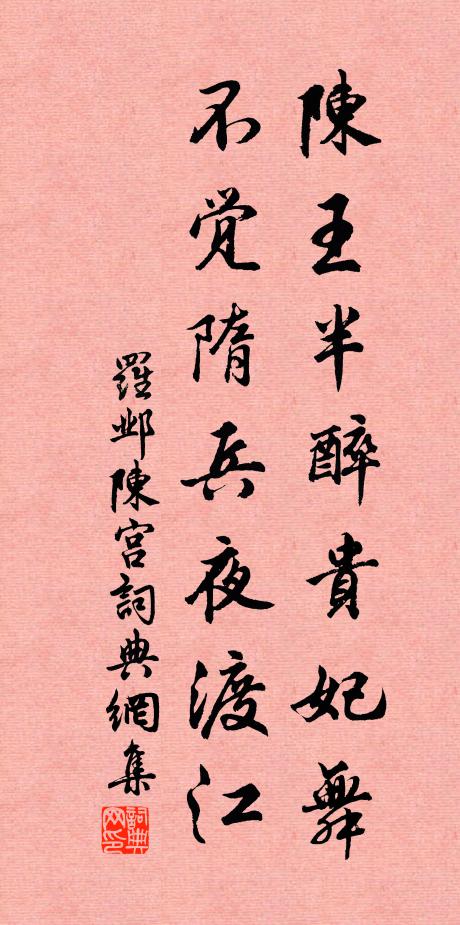 陳王半醉貴妃舞
不覺隋兵夜渡江
羅鄴陳宮詞典網集
詞典网印